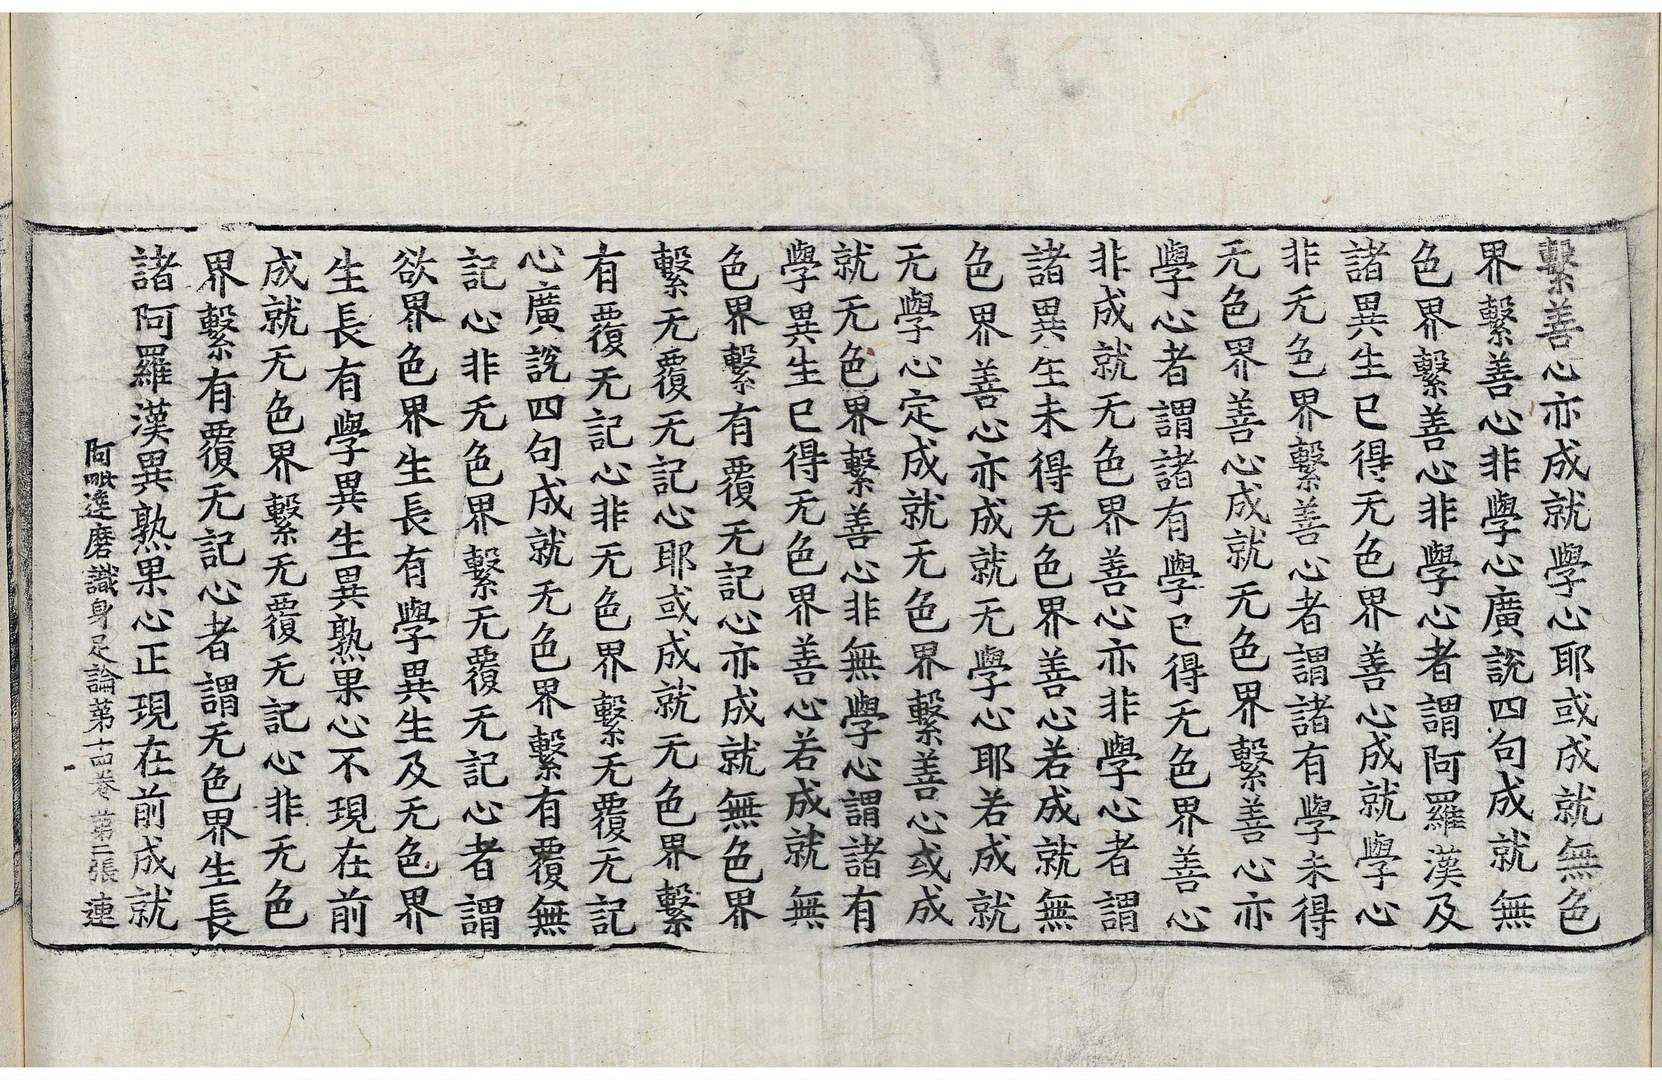 繫善心亦成就學心耶或成就無色
界繫善心非學心廣說四句成就無
色界繫善心非學心者謂阿羅漢及
諸異生已得无色界善心成就學心
非无色界繫善心者謂諸有學未得
无色界善心成就无色界繫善心亦
學心者謂諸有學已得无色界善心
非成就无色界善心亦非學心者謂
諸異生未得无色界善心若成就無
色界善心亦成就无學心耶若成就
无學心定成就无色界繫善心或成
就无色界繫善心非無學心謂諸有
學異生已得无色界善心若成就無
色界繫有覆无記心亦成就無色界
繫无覆无記心耶或成就无色界繫
有覆无記心非无色界繫无覆无記
心廣說四句成就无色界繫有覆無
記心非无色界繫无覆无記心者謂
欲界色界生長有學異生及无色界
生長有學異生異熟果心不現在前
成就无色界繫无覆无記心非无色
界繫有覆无記心者謂无色界生長
諸阿羅漢異熟果心正現在前成就
阿毗達磨識身足論第十四卷 第二張 連